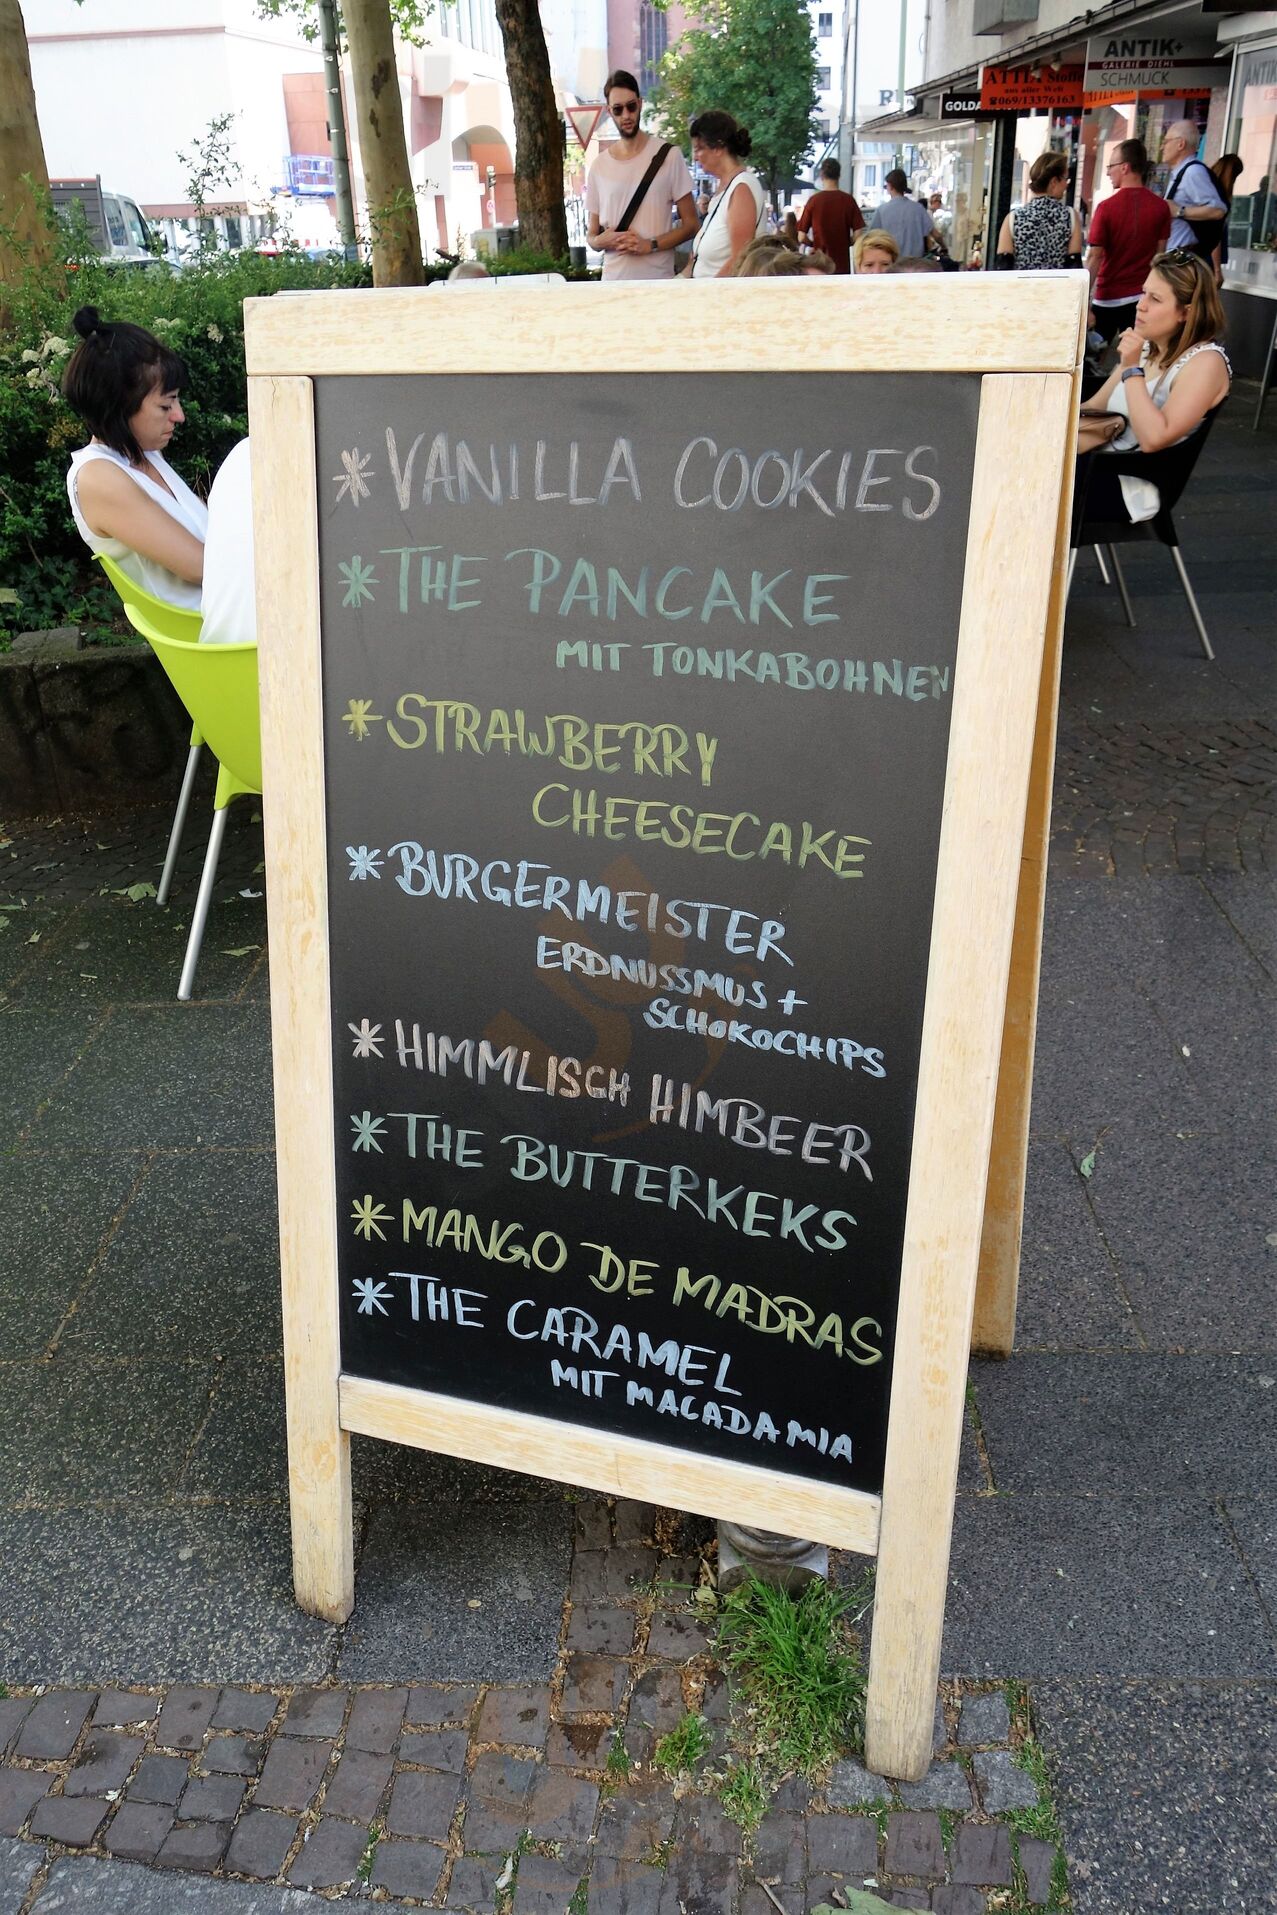 ANTIK+
GALERIE DIEHL
SCHMUCK
ATTIA Stoffe
aus aller Welt
☎069/13376163
GOLDA
* VANILLA COOKIES
* THE PANCAKE
MIT TONKABOHNEN
* STRAWBERRY
CHEESECAKE
* BURGERMEISTER
ERDNUSSMUS +
SCHOKOCHIPS
* HIMMLISCH HIMBEER
* THE BUTTERKEKS
* MANGO DE MADRAS
* THE CARAMEL
MIT MACADAMIA